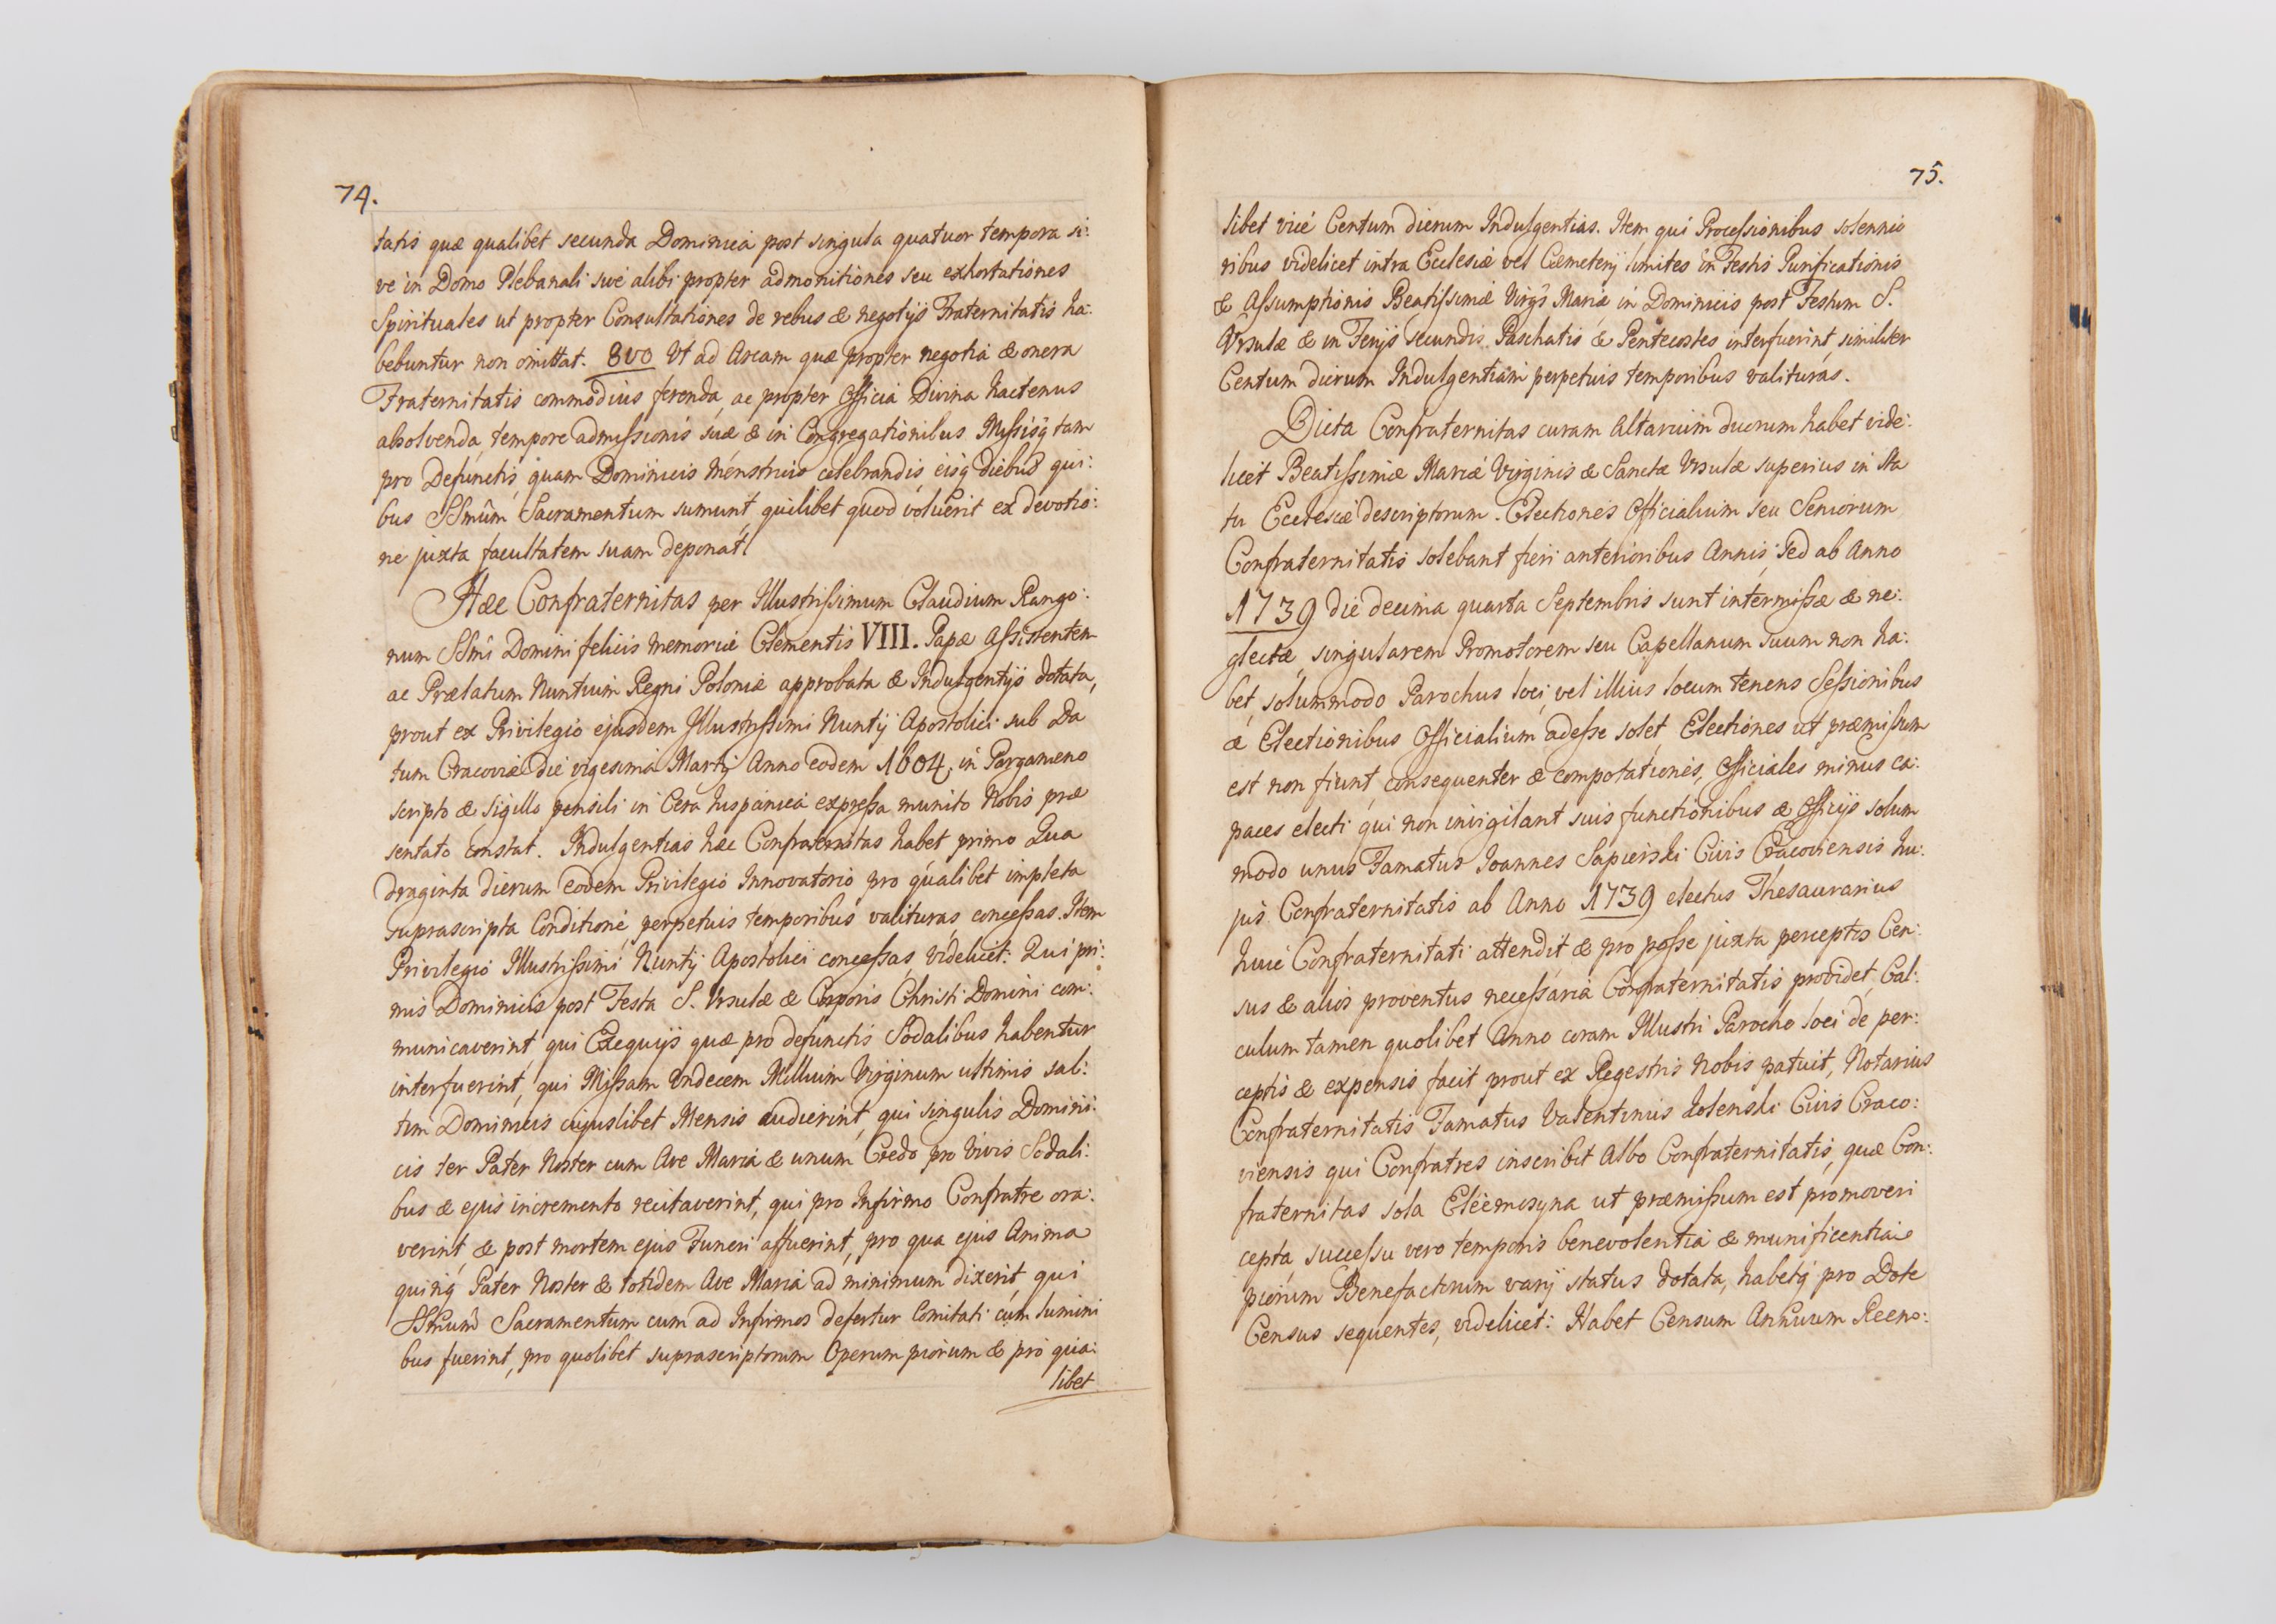 74.
tatis quæ qualibet secunda Dominica post singula quatuor tempora si:
ve in Domo Plebanali sive alibi propter admonitiones seu exhortationes
Spirituales ut propter Consultationes de rebus & negotijs Fraternitatis ha:
bebuntur non omittat. 8vo Vt ad Arcam quæ propter negotia & onera
Fraternitatis commodius ferenda, ac propter Officia Divina hactenus
absolvenda, tempore admissionis suæ & in Congregationibus Missisq tam
pro Defunctis, quam Dominicis Menstruis celebrandis, eisq diebus qui:
bus SSmûm Sacramentum sumunt, quilibet quod voluerit ex devotio:
ne juxta facultatem suam deponat.
Hæc Confraternitas per Illustrissimum Claudium Rango:
num SSmi Domini felicis memoriæ Clementis VIII. Papæ Assistentem
ac Prælatum Nuntium Regni Poloniæ approbata & Indulgentijs dotata,
prout ex Privilegio ejusdem Illustrissimi Nuntij Apostolici sub Da
tum Cracoviæ die vigesima Martij Anno eodem 1604, in Pargameno
scripto & Sigillo pensili in Cera hispanica expressa munito Nobis præ
sentato constat. Indulgentias hæc Confraternitas habet primo Qua
draginta dierum eodem Privilegio Innovatorio pro qualibet impleta
suprascripta Conditione, perpetuis temporibus valituras, concessas. Item
Privilegio Illustrissimi Nuntij Apostolici concessas, videlicet: Qui pri:
mis Dominicis post Festa S. Vrsulæ & Corporis Christi Domini com:
municaverint, qui Exequijs quæ pro defunctis Sodalibus habentur
interfuerint, qui Missam Vndecem Millium Virginum ultimis sal:
tim Dominicis cujuslibet Mensis audierint, qui singulis Domini:
cis ter Pater Noster cum Ave Maria & unum Credo pro Vivis Sodali:
bus & ejus incremento recitaverint, qui pro Infirmo Confratre ora:
verint, & post mortem ejus Funeri affuerint, pro qua ejus Anima
quinq Pater Noster & totidem Ave Maria ad minimum dixerit, qui
SSmum Sacramentum cum ad Infirmos defertur Comitati cum lumini
bus fuerint, pro quolibet suprascriptorum Operum piorum & pro qua:
libet
75.
libet vice Centum dierum Indulgentias. Item qui Processionibus solennio
ribus videlicet intra Ecclesiæ vel Cæmeterij limites in Festis Purificationis
& Assumptionis Beatissimæ Virgs Mariæ in Dominicis post Festum S.
Vrsulæ & in Ferijs secundis Paschatis & Pentecostes interfuerint, similiter
Centum dierum Indulgentiam perpetuis temporibus valituras.
Dicta Confraternitas curam Altarium duorum habet vide:
licet Beatissimæ Mariæ Virginis & Sanctæ Vrsulæ superius in sta
tu Ecclesiæ descriptorum. Electiones Officialium seu Seniorum
Confraternitatis solebant fieri anterioribus Annis, sed ab Anno
1739 die decima quarta Septembris sunt intermissæ & ne:
glectæ, singularem Promotorem seu Capellanum suum non ha:
bet, solummodo Parochus loci, vel illius locum tenens Sessionibus
& Electionibus Officialium adesse solet, Electiones ut præmissum
est non fiunt, consequenter & compotationes, Officiales minus ca:
paces electi qui non invigilant suis functionibus & Officijs solum
modo unus Famatus Ioannes Sapierski Civis Cracoviensis hu:
jus Confraternitatis ab Anno 1739 electus Thesaurarius
huic Confraternitati attendit & pro posse juxta perceptos Cen:
sus & alios proventus necessaria Confraternitatis providet, Cal:
culum tamen quolibet Anno coram Illustri Parocho loci de per:
ceptis & expensis facit prout ex Regestris Nobis patuit, Notarius
Confraternitatis Famatus Valentinus Civis Craco:
viensis qui Confratres inscribit Albo Confraternitatis, quæ Con:
fraternitas sola Eleemosyna ut præmissum est promoveri
cepta, successu vero temporis benevolentia & munificentia
piorum Benefactorum varij status dotata, habetq pro Dote
Census sequentes, videlicet: Habet Censum Annuum Reemo: